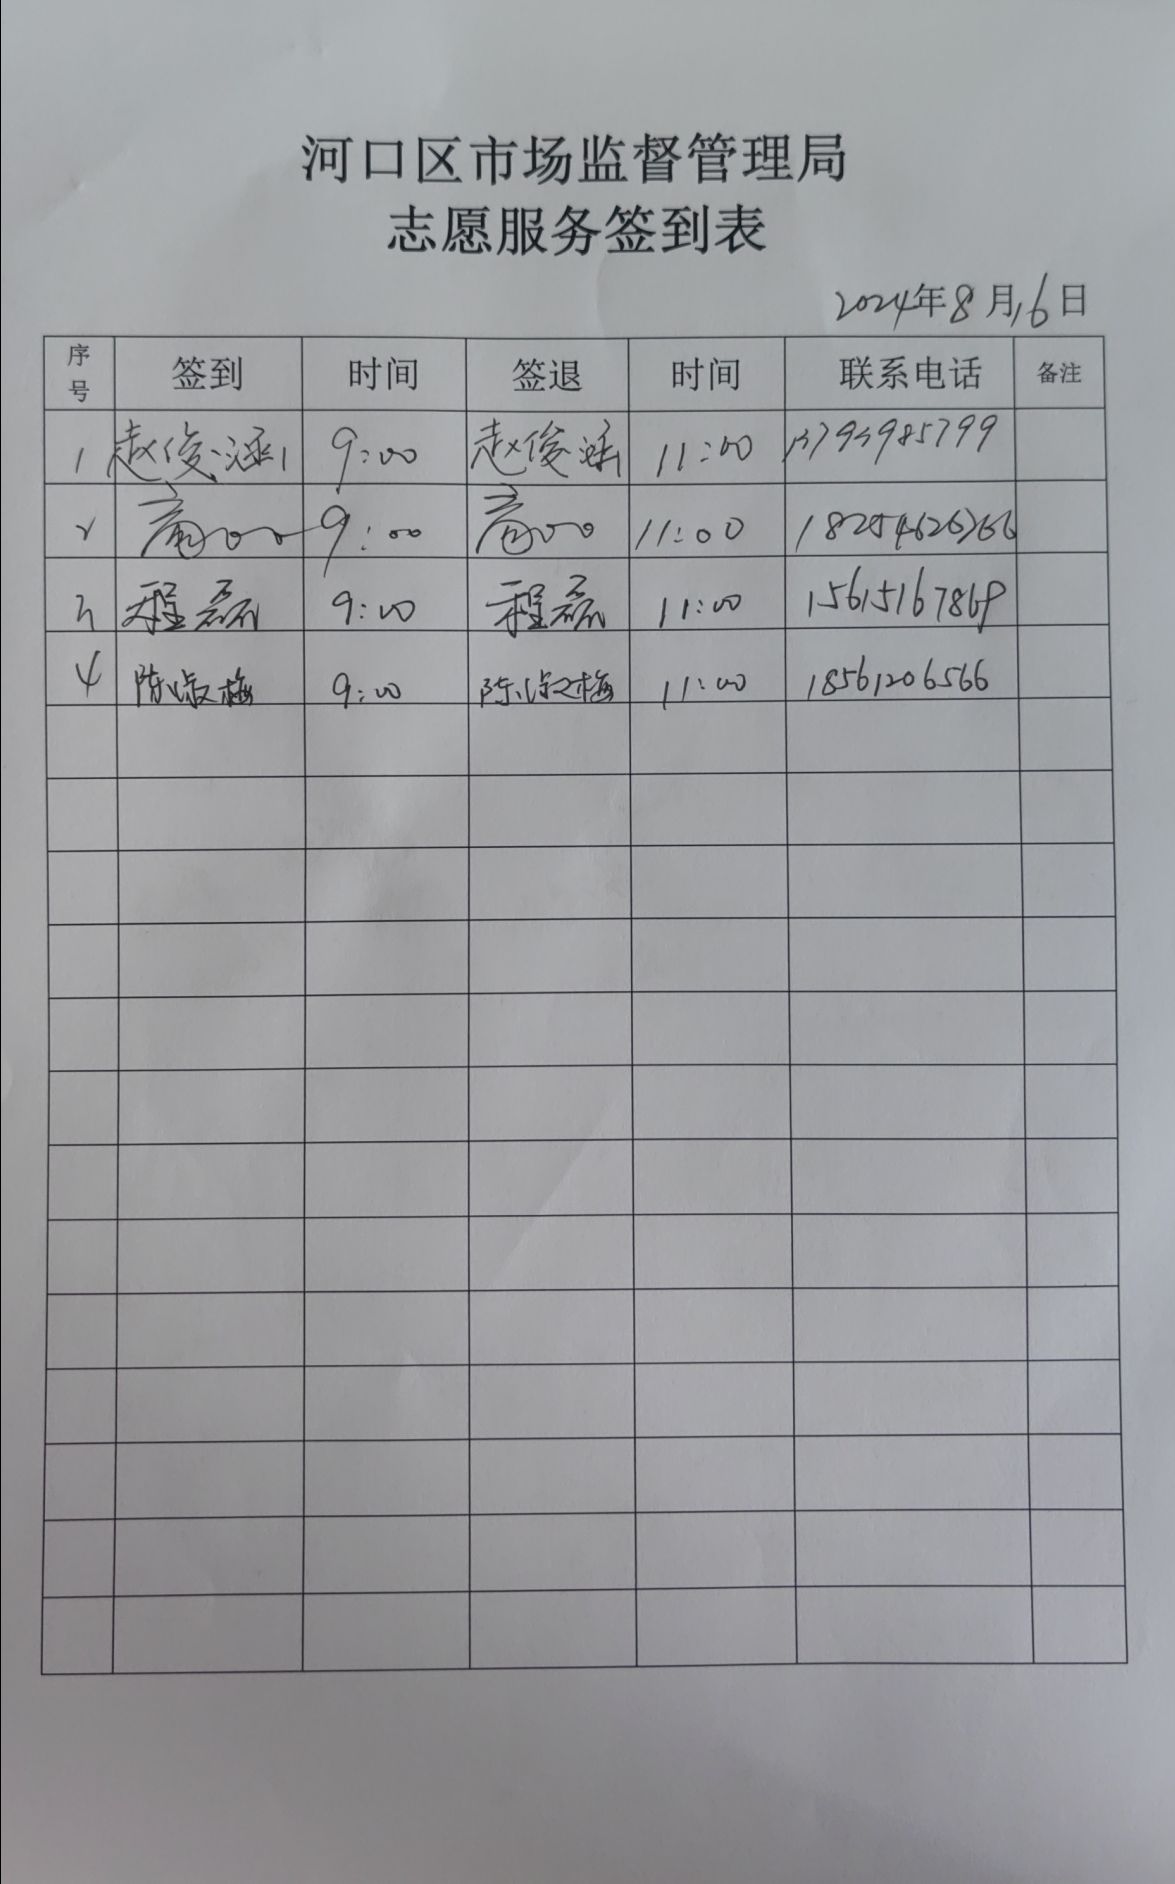 河口区市场监督管理局
志愿服务签到表
2024年8月16日
序号 签到 时间 签退 时间 联系电话 备注
1 赵俊涵 9:00 赵俊涵 11:00 13793985799
2 9:00 11:00
3 程磊 9:00 程磊 11:00 15615167869
4 陈淑梅 9:00 陈淑梅 11:00 18561206566